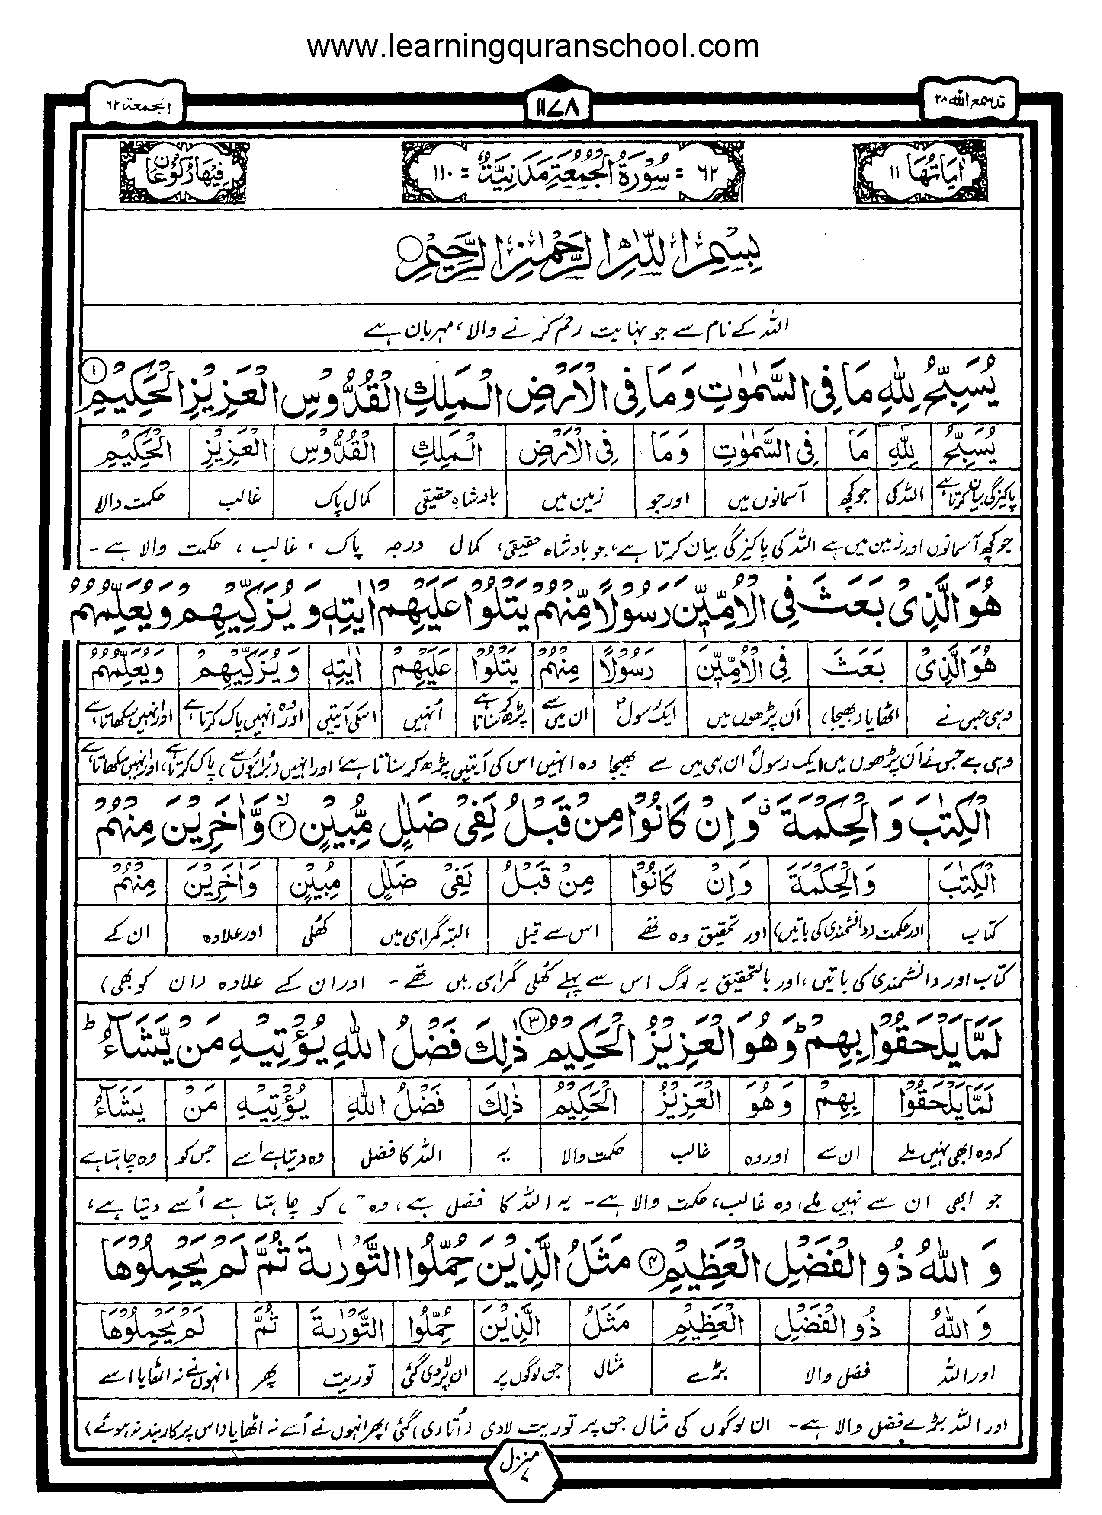 www.learningquranschool.com
قد سمع الله ٢٨
١١٧٨
الجمعة ٦٢
اٰيَاتُهَا ١١
٦٢ = سُوْرَةُ الْجُمُعَةِ مَدَنِيَّةٌ = ١١٠
فِيْهَا رُكُوْعَانِ
بِسْمِ اللّٰهِ الرَّحْمٰنِ الرَّحِيْمِ
اللہ کے نام سے جو نہایت رحم کرنے والا، مہربان ہے
يُسَبِّحُ لِلّٰهِ مَا فِى السَّمٰوٰتِ وَمَا فِى الْاَرْضِ الْمَلِكِ الْقُدُّوْسِ الْعَزِيْزِ الْحَكِيْمِ ١
يُسَبِّحُ لِلّٰهِ مَا فِى السَّمٰوٰتِ وَمَا فِى الْاَرْضِ الْمَلِكِ الْقُدُّوْسِ الْعَزِيْزِ الْحَكِيْمِ
پاکیزگی بیان کرتا ہے اللہ کی جو کچھ آسمانوں میں اور جو زمین میں بادشاہ حقیقی کمال پاک غالب حکمت والا
جو کچھ آسمانوں اور زمین میں ہے اللہ کی پاکیزگی بیان کرتا ہے، جو بادشاہ حقیقی، کمال درجہ پاک، غالب، حکمت والا ہے۔
هُوَ الَّذِىْ بَعَثَ فِى الْاُمِّيّٖنَ رَسُوْلًا مِّنْهُمْ يَتْلُوْا عَلَيْهِمْ اٰيٰتِهٖ وَ يُزَكِّيْهِمْ وَيُعَلِّمُهُمُ
هُوَ الَّذِىْ بَعَثَ فِى الْاُمِّيّٖنَ رَسُوْلًا مِنْهُمْ يَتْلُوْا عَلَيْهِمْ اٰيٰتِهٖ وَيُزَكِّيْهِمْ وَيُعَلِّمُهُمُ
وہی جس نے اٹھایا (بھیجا) ان پڑھوں میں ایک رسول ان میں سے پڑھ کر سناتا ہے انہیں اسکی آیتیں اور وہ انہیں پاک کرتا ہے اور انہیں سکھاتا ہے
وہی ہے جس نے ان پڑھوں میں ایک رسول ان ہی میں سے بھیجا وہ انہیں اس کی آیتیں پڑھ کر سناتا ہے اور انہیں (برائیوں سے) پاک کرتا ہے، اور انہیں سکھاتا ہے
الْكِتٰبَ وَ الْحِكْمَةَ وَاِنْ كَانُوْا مِنْ قَبْلُ لَفِىْ ضَلٰلٍ مُّبِيْنٍ ٢ وَّاٰخَرِيْنَ مِنْهُمْ
الْكِتٰبَ وَالْحِكْمَةَ وَاِنْ كَانُوْا مِنْ قَبْلُ لَفِىْ ضَلٰلٍ مُبِيْنٍ وَاٰخَرِيْنَ مِنْهُمْ
کتاب اور حکمت (دانشمندی کی باتیں) اور تحقیق وہ تھے اس سے قبل البتہ گمراہی میں کھلی اور علاوہ ان کے
کتاب اور دانشمندی کی باتیں، اور بالتحقیق یہ لوگ اس سے پہلے کھلی گمراہی میں تھے۔ اور ان کے علاوہ (ان کو بھی)
لَمَّا يَلْحَقُوْا بِهِمْ وَهُوَ الْعَزِيْزُ الْحَكِيْمُ ٣ ذٰلِكَ فَضْلُ اللّٰهِ يُؤْتِيْهِ مَنْ يَّشَآءُ
لَمَّا يَلْحَقُوْا بِهِمْ وَهُوَ الْعَزِيْزُ الْحَكِيْمُ ذٰلِكَ فَضْلُ اللّٰهِ يُؤْتِيْهِ مَنْ يَشَآءُ
کہ وہ ابھی نہیں ملے ان سے اور وہ غالب حکمت والا یہ اللہ کا فضل وہ دیتا ہے اسے جس کو وہ چاہتا ہے
جو ابھی ان سے نہیں ملے، وہ غالب، حکمت والا ہے۔ یہ اللہ کا فضل ہے، وہ کو چاہتا ہے اُسے دیتا ہے،
وَ اللّٰهُ ذُو الْفَضْلِ الْعَظِيْمِ ٤ مَثَلُ الَّذِيْنَ حُمِّلُوا التَّوْرٰىةَ ثُمَّ لَمْ يَحْمِلُوْهَا
وَ اللّٰهُ ذُو الْفَضْلِ الْعَظِيْمِ مَثَلُ الَّذِيْنَ حُمِّلُوا التَّوْرٰىةَ ثُمَّ لَمْ يَحْمِلُوْهَا
اور اللہ فضل والا بڑے مثال جن لوگوں پر ان پر لادی گئی توریت پھر انہوں نے نہ اٹھایا اسے
اور اللہ بڑے فضل والا ہے۔ ان لوگوں کی مثال جن پر توریت لادی (اُتاری) گئی پھر انہوں نے اُسے نہ اٹھایا (اس پر کاربند نہ ہوئے)
منزل ٧